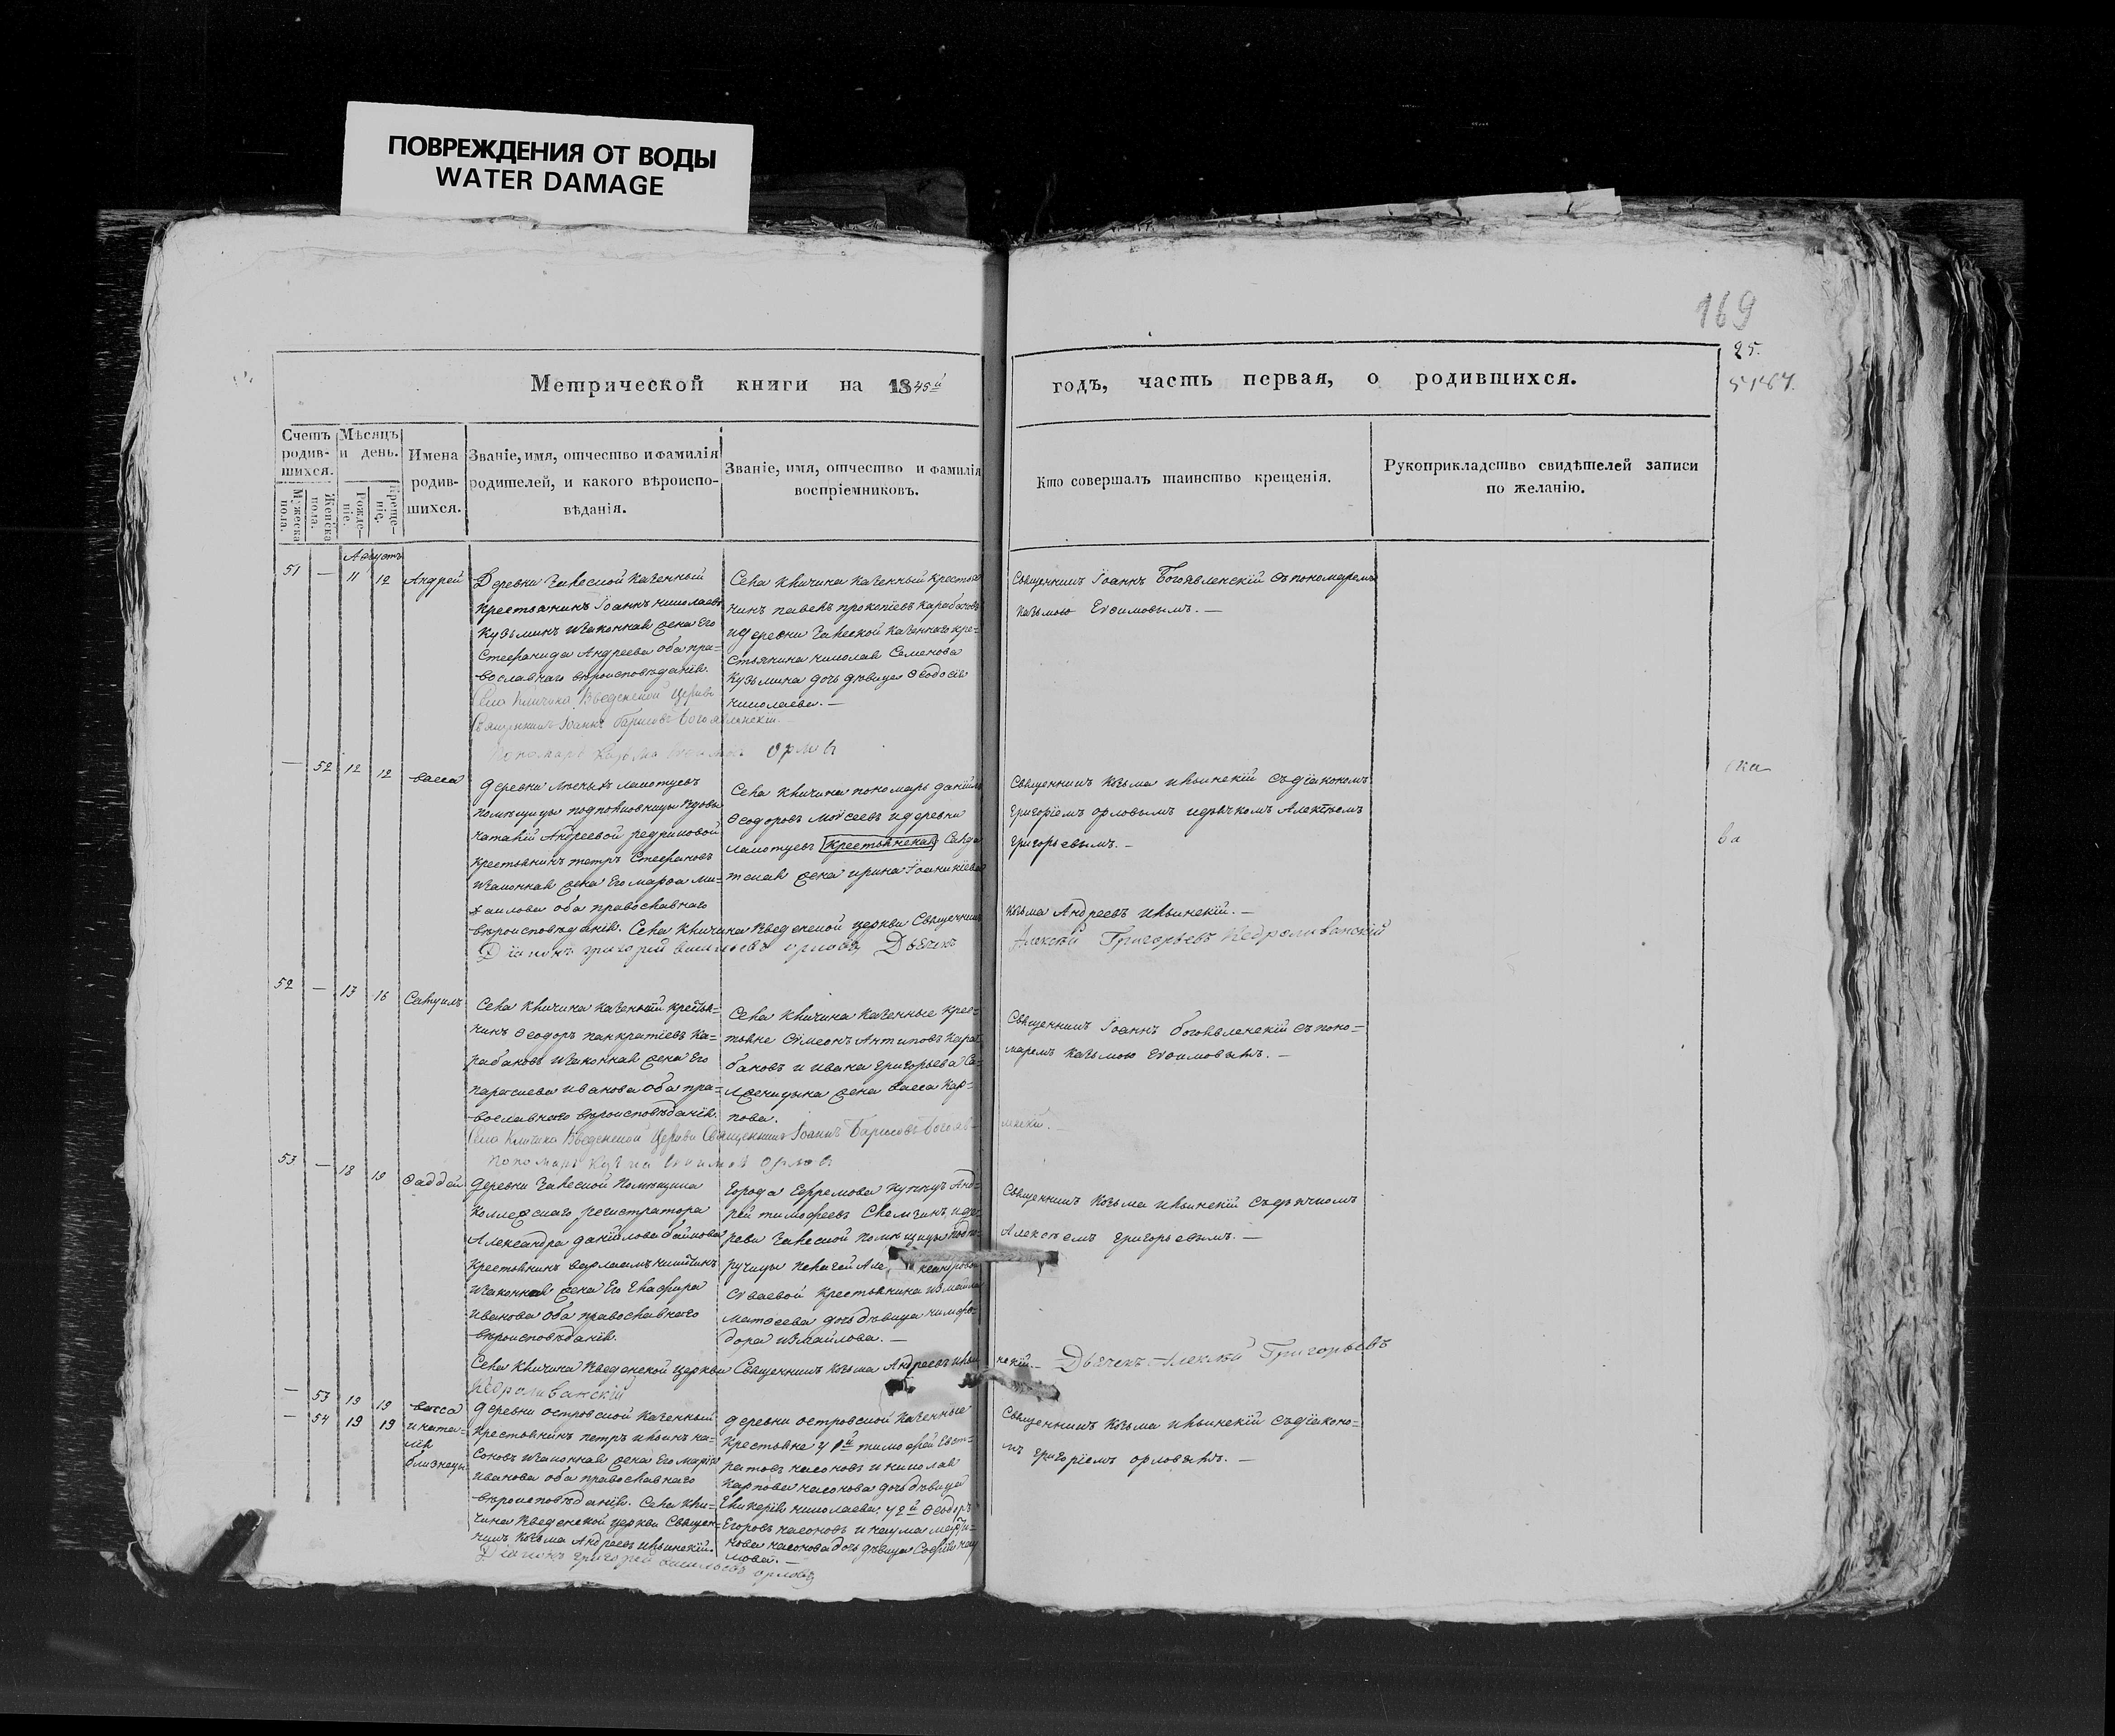 ПОВРЕЖДЕНИЯ ОТ ВОДЫ
WATER DAMAGE
169
25.
Метрической книги на 1845й
годъ, часть первая, о родившихся.
Счетъ родив-шихся.
Мужеска пола.
Женска пола.
Мѣсяцъ и день.
Рожде-нія.
Креще-нія.
Имена родив-шихся.
Званіе, имя, отчество и фамилія
родителей, и какого вѣроиспо-
вѣданія.
Званіе, имя, отчество и фамилія
воспріемниковъ.
Кто совершалъ таинство крещенія.
Рукоприкладство свидѣтелей записи
по желанію.
Августъ
51 — 11 12 Андрей
Деревни казенный
крестьянинъ Іоаннъ Николаевъ
Кузьминъ изаконная жена его
Стефанида Андреева оба пра=
вославнаго вѣроисповѣданія.
Села Кличина Введенской церкви
Священникъ Іоаннъ Борисовъ Богоявленскій.
Пономарь Козьма Орловъ
Села Кличина казенный крестья
нинъ павелъ прокопіевъ Карабановъ
идеревни казеннаго кре=
стьянина николая Семенова
Кузьмина дочь дѣвица Ѳеодосія
николаева. —
Священникъ Іоаннъ Богоявленскій съ пономаремъ
Козьмою Еѳимовымъ. —
— 52 12 12 васса
деревни
помѣщицы подполковницы вдовы
наталіи Андреевой
крестьянинъ петръ Стефановъ
изаконная жена его марѳа ми=
хаилова оба православнаго
вѣроисповѣданія. Села Кличина Введенской церкви Священникъ
Діаконъ григорій васильевъ орловъ Дьячекъ
Села Кличина пономарь даніилъ
Ѳеодоровъ Моисеевъ идеревни
крестьянская Солда
тская жена ирина Іоаникіева
Священникъ Козьма ильинскій съдіакономъ
Григоріемъ орловымъ идьячкомъ Алексѣемъ
григорьевымъ. —
Козьма Андреевъ ильинскій. —
Алексѣй Григорьевъ
ва
52 — 13 16 Самуилъ
Села Кличина казенный крестья=
нинъ Ѳеодоръ панкратіевъ Ка=
рабановъ изаконная жена его
параскева иванова оба пра=
вославнаго вѣроисповѣданія.
Села Кличина Введенской церкви Священникъ Іоаннъ Борисовъ Богояв=
ленскій. —
Пономарь Козьма Орловъ
Села Кличина казенные крес=
тьяне Сѵмеонъ Антиповъ Кара
бановъ и ивана григорьева
жена васса Кар=
пова.
Священникъ Іоаннъ богоявленскій съ поно=
маремъ Козьмою Еѳимовымъ. —
53 — 18 19 Ѳаддей
Деревни помѣщика
Коллежскаго регистратора
Александра даніилова
крестьянинъ варлаамъ никитинъ
изаконная жена его Глафира
иванова оба православнаго
вѣроисповѣданія.
Села Кличина Введенской церкви Священникъ Козьма Андреевъ ильинскій. — Дьячекъ Алексѣй Григорьевъ
города Ефремова купецъ Анд=
рей тимофеевъ иде=
ревни помѣщицы подпо=
ручицы пелагеи Александровой
крестьянина измаила
матвеева дочь дѣвица нимфо=
дора измайлова. —
Священникъ Козьма ильинскій съдьячкомъ
Алексѣемъ григорьевымъ. —
— 53 19 19 васса
— 54 19 19 и ната=
лія
близнецы
деревни островской казенный
крестьянинъ петръ ильинъ на=
соновъ изаконная жена его марія
иванова оба православнаго
вѣроисповѣданія. Села Кли=
чина Введенской церкви Священ=
никъ Козьма Андреевъ ильинскій.
Діаконъ григорій васильевъ орловъ
деревни островской казенные
крестьяне у 1й тимофей Евст=
ратовъ насоновъ и николая
Карпова насонова дочь дѣвица
Гликерія николаева. у 2й Ѳеодоръ
Егоровъ насоновъ и наума
насонова дочь дѣвица Софія нау
мова. —
Священникъ Козьма ильинскій съдіаконо=
мъ григоріемъ орловымъ. —